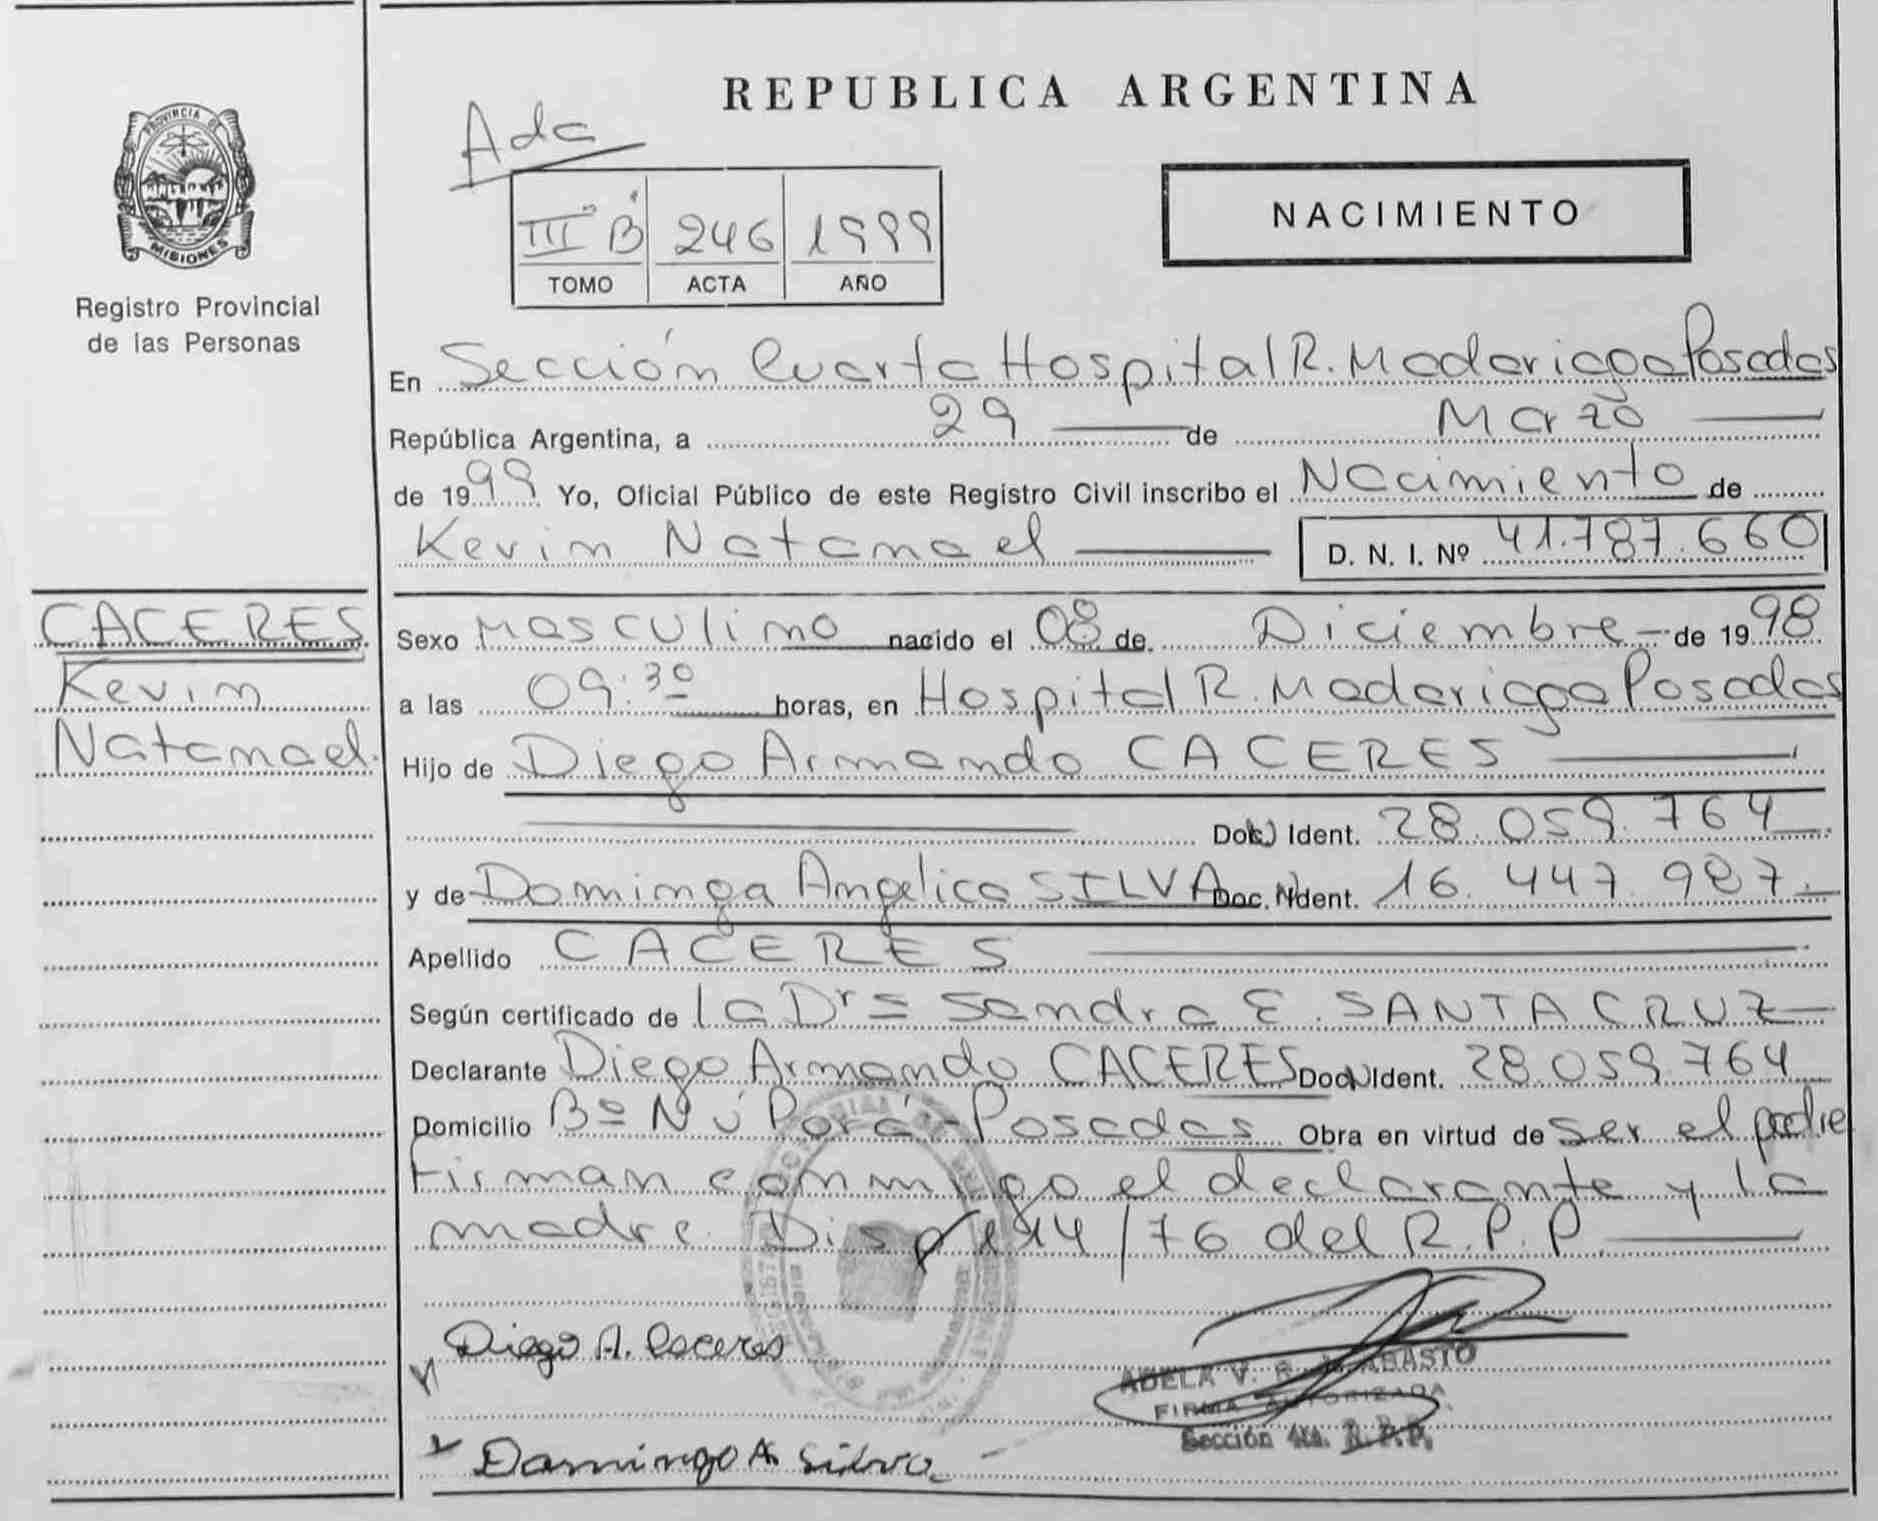 PROVINCIA DE
MISIONES
Registro Provincial
de las Personas
CACERES
Kevin
Natanael
REPUBLICA ARGENTINA
Ada
III B 246 1999
TOMO ACTA AÑO
NACIMIENTO
En Sección Cuarta Hospital R. Madariaga Posadas
República Argentina, a 29 de Marzo
de 1999 Yo, Oficial Público de este Registro Civil inscribo el Nacimiento de
Kevin Natanael D. N. I. Nº 41.787.660
Sexo Masculino nacido el 08 de Diciembre de 1998
a las 09:30 horas, en Hospital R. Madariaga Posadas
Hijo de Diego Armando CACERES
Doc. Ident. 28.059.764
y de Dominga Angelica SILVA Doc. Ident. 16.447.987
Apellido CACERES
Según certificado de la Dra Sandra E. SANTA CRUZ
Declarante Diego Armando CACERES Doc. Ident. 28.059.764
Domicilio Bº Ñú Porá - Posadas Obra en virtud de ser el padre
Firman conmigo el declarante y la
madre. Disp 144/76 del R.P.P.
Diego A. Caceres
ADELA V. R.
FIRMA AUTORIZADA
Sección 4ta. R.P.P.
Dominga A Silva